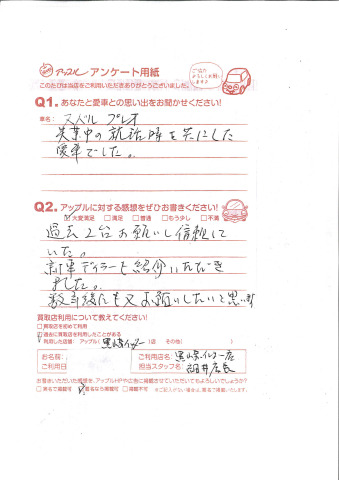 アップル アンケート用紙
このたびは当店をご利用いただきありがとうございました。
ご協力よろしくお願いします♪
Q1. あなたと愛車との思い出をお聞かせください!
車名: スバル プレオ
失業中の就活時を共にした
愛車でした。
Q2. アップルに対する感想をぜひお書きください!
☑大変満足 □満足 □普通 □もう少し □不満
過去2台お願いし信頼して
いた。
新車ディーラーも紹介いただき
ました。
数年後にも又お願いしたいと思います
買取店利用について教えてください!
□買取店を初めて利用
☑過去に買取店を利用したことがある
利用した店舗: アップル( 黒崎インター )店 その他( )
お名前:
ご利用日
ご利用店名: 黒崎インター店
担当スタッフ名: 細井店長
お書きいただいた感想を、アップルHPや広告に掲載させていただいてもよろしいでしょうか?
□実名で掲載可 ☑匿名なら掲載可 □掲載不可 ※ご記入がない場合は、匿名で掲載いたします。